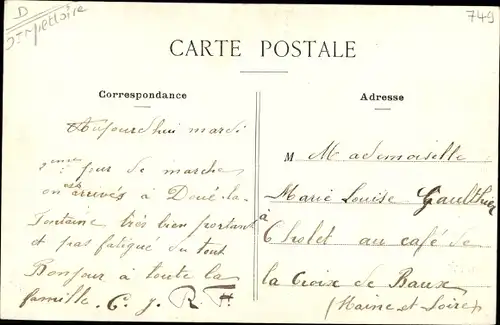 D
Dt M et Loire
749
CARTE POSTALE
Correspondance
Adresse
Aujourd'hui mardi
2eme jour de marche
on est arrivés à Doué-la-
Fontaine très bien portant
et pas fatigué du tout
Bonjour à toute la
famille. C. J. R. H
M Mademoiselle
Marie Louise Gaulthier
à
Cholet au café de
la Croix de Baux
(Maine et Loire)